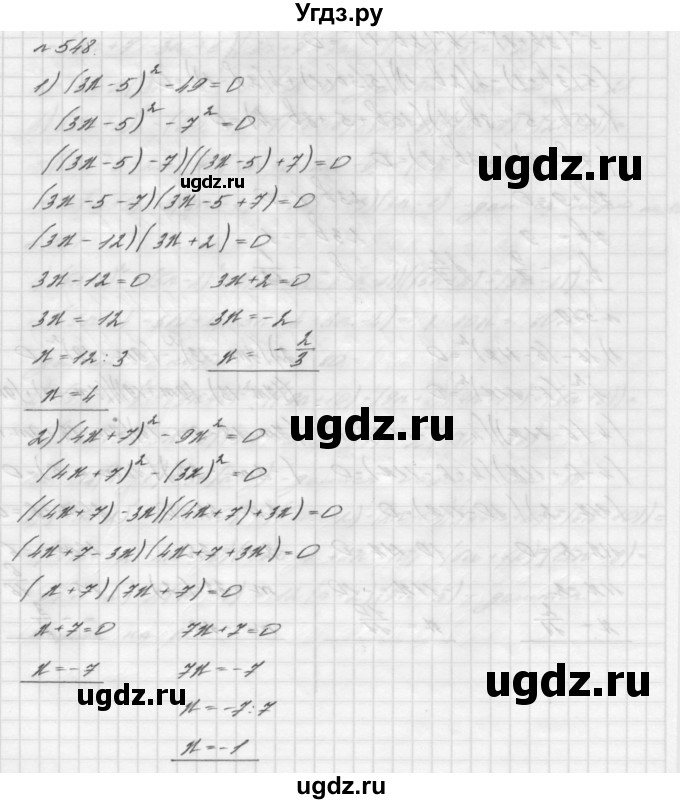 Угдз.ру
№ 548.
1) (3x - 5)² - 49 = 0
(3x - 5)² - 7² = 0
((3x - 5) - 7)((3x - 5) + 7) = 0
ugdz.ru
ugdz.ru
(3x - 5 - 7)(3x - 5 + 7) = 0
(3x - 12)(3x + 2) = 0
3x - 12 = 0 3x + 2 = 0
3x = 12 3x = -2
x = 12 : 3 x = -2/3
x = 4
ugdz.ru
2) (4x + 7)² - 9x² = 0
(4x + 7)² - (3x)² = 0
((4x + 7) - 3x)((4x + 7) + 3x) = 0
(4x + 7 - 3x)(4x + 7 + 3x) = 0
(x + 7)(7x + 7) = 0
x + 7 = 0 7x + 7 = 0
x = -7 7x = -7
ugdz.ru
ugdz.ru
x = -7 : 7
x = -1
ugdz.ru